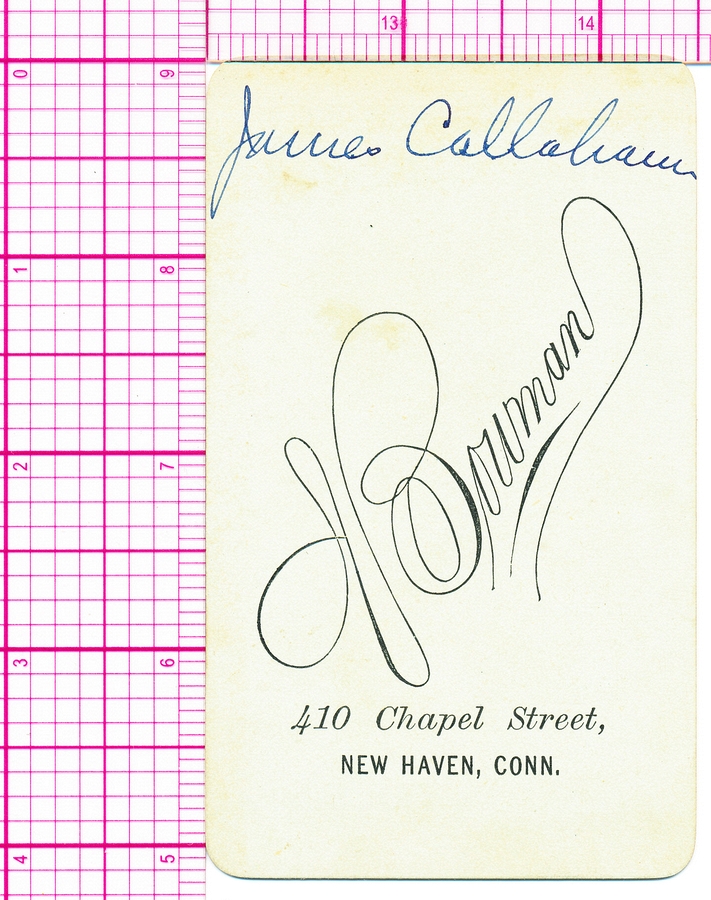 13 14
0 9
James Callahan
1 8
Bowman
2 7
3 6
410 Chapel Street,
NEW HAVEN, CONN.
4 5